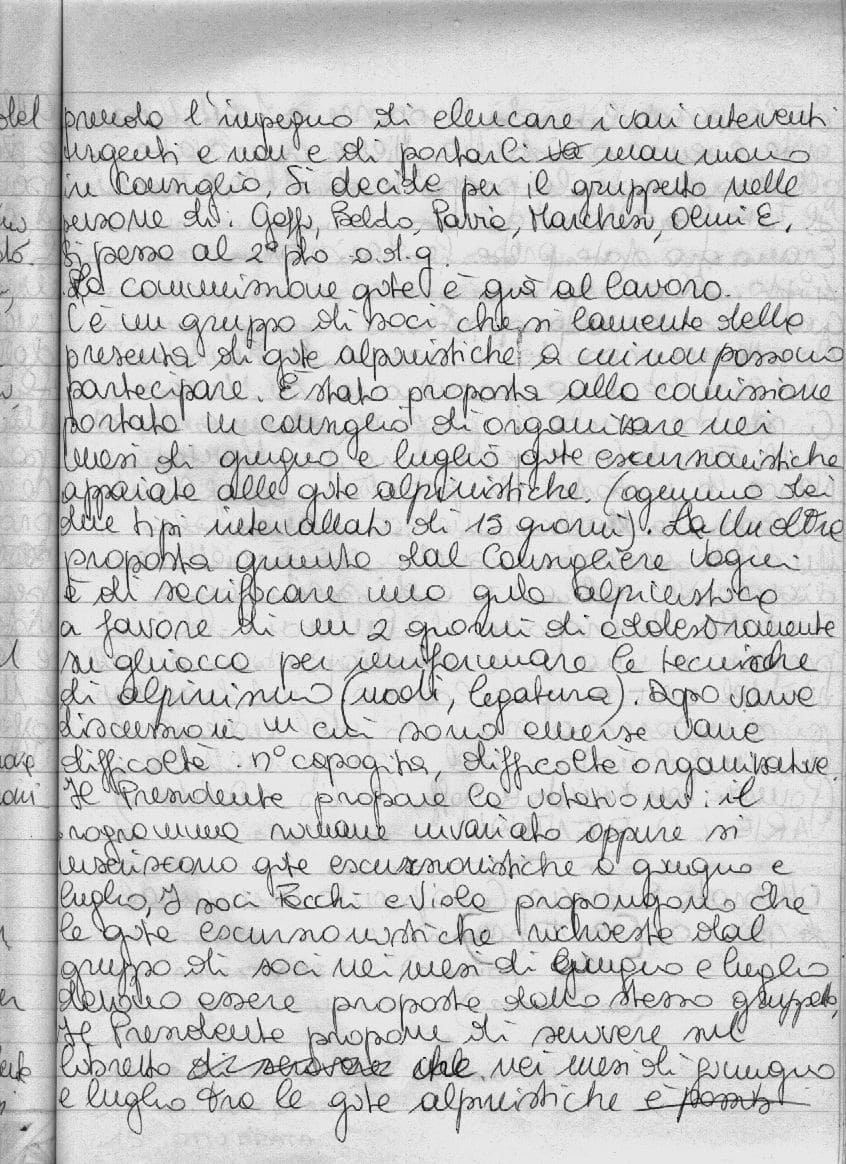 prenda l'impegno di elencare i vari interventi
urgenti e non e di portarli man mano
in Consiglio. Si decide per il gruppetto nelle
persone di: Goffi, Beldo, Pavia, Marchesi, Olmi E.
Si passa al 2° pto o.d.g.
La commissione gite è già al lavoro.
C'è un gruppo di soci che si lamenta della
presenza di gite alpinistiche a cui non possono
partecipare. È stato proposta alla comissione
portato in consiglio di organizzare nei
mesi di giugno e luglio gite escursionistiche
appaiate alle gite alpinistiche (ogenuno dei
due tipi intervallato di 15 giorni). Un'altra
proposta giunta dal Consigliere Vogini
è di sacrificare una gita alpinistica
a favore di un 2 giorni di addestramento
su ghiacco per uniformare le tecniche
di alpinismo (nodi, legatura). Dopo varie
discussioni in cui sono emerse varie
difficoltà n° capogita, difficoltà organizzative.
Il Presidente propone la votazione: il
programma rimane invariato oppure si
inseriscono gite escursionistiche a giugno e
luglio. I soci Focchi e Viola propongono che
le gite escursionistiche richieste dal
gruppo di soci nei mesi di Giugno e luglio
devono essere proposte dallo stesso gruppetto,
Il Presidente propone di scrivere sul
libretto di scrivere che nei mesi di giugno
e luglio tra le gite alpinistiche e